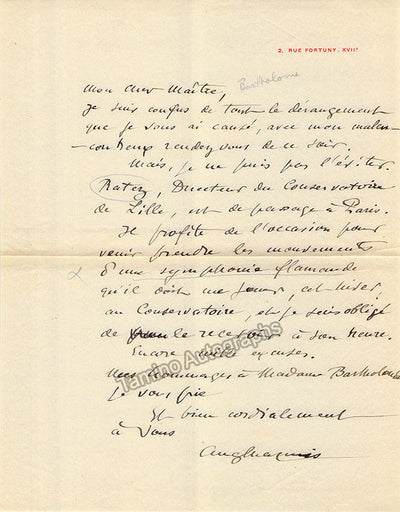 2, RUE FORTUNY. XVIIe
Bartholomé
Mon cher Maître,
Je suis confus de tout le dérangement
que je vous ai causé, avec mon malen-
contreux rendez vous de ce soir.
Mais, je ne puis pas l'éviter.
Ratez, Directeur du Conservatoire
de Lille, est de passage à Paris.
Il profite de l'occasion pour
venir prendre les mouvements
d'une symphonie flamande
qu'il doit me jouer, cet hiver
au Conservatoire, et je suis obligé
de le recevoir à son heure.
Encore mille excuses.
Mes hommages à Madame Bartholomé
Je vous prie
Et bien cordialement
à vous
Tamino Autographs